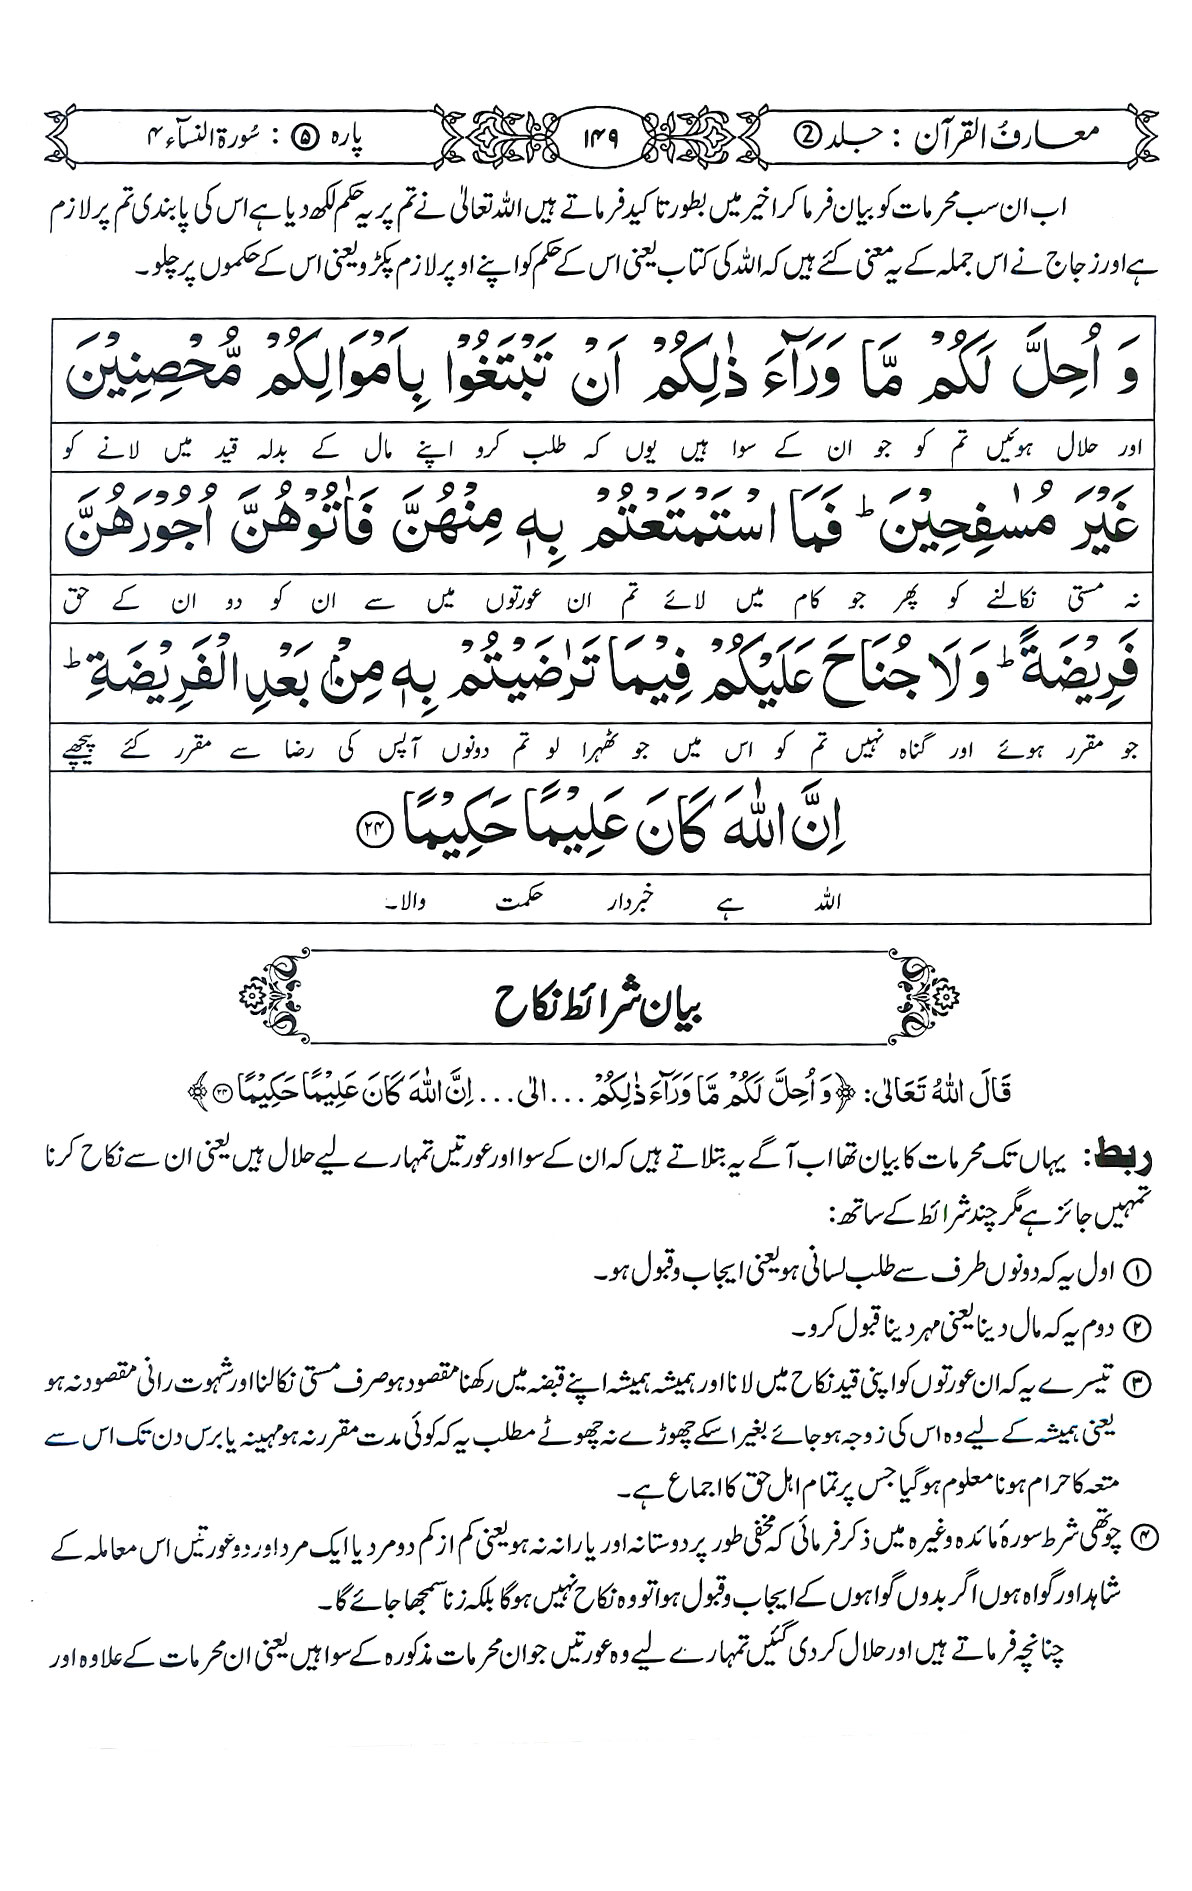 معارفُ القرآن : جلد ②
۱۴۹
پارہ ⑤ : سُورۃ النسآء ۴
اب ان سب محرمات کو بیان فرما کر اخیر میں بطور تاکید فرماتے ہیں اللہ تعالیٰ نے تم پر یہ حکم لکھ دیا ہے اس کی پابندی تم پر لازم
ہے اور زجاج نے اس جملہ کے یہ معنی کئے ہیں کہ اللہ کی کتاب یعنی اس کے حکم کو اپنے اوپر لازم پکڑو یعنی اس کے حکموں پر چلو۔
وَ اُحِلَّ لَكُمْ مَّا وَرَآءَ ذٰلِكُمْ اَنْ تَبْتَغُوْا بِاَمْوَالِكُمْ مُّحْصِنِيْنَ
اور حلال ہوئیں تم کو جو ان کے سوا ہیں یوں کہ طلب کرو اپنے مال کے بدلہ قید میں لانے کو
غَيْرَ مُسٰفِحِيْنَ ؕ فَمَا اسْتَمْتَعْتُمْ بِهٖ مِنْهُنَّ فَاٰتُوْهُنَّ اُجُوْرَهُنَّ
نہ مستی نکالنے کو پھر جو کام میں لائے تم ان عورتوں میں سے ان کو دو ان کے حق
فَرِيْضَةً ؕ وَلَا جُنَاحَ عَلَيْكُمْ فِيْمَا تَرٰضَيْتُمْ بِهٖ مِنْۢ بَعْدِ الْفَرِيْضَةِ ؕ
جو مقرر ہوئے اور گناہ نہیں تم کو اس میں جو ٹھہرا لو تم دونوں آپس کی رضا سے مقرر کئے پیچھے
اِنَّ اللّٰهَ كَانَ عَلِيْمًا حَكِيْمًا ۲۴
اللہ ہے خبردار حکمت والا۔
بیان شرائط نکاح
قَالَ اللهُ تَعَالٰى: ﴿وَ اُحِلَّ لَكُمْ مَّا وَرَآءَ ذٰلِكُمْ ... الى ... اِنَّ اللّٰهَ كَانَ عَلِيْمًا حَكِيْمًا ۲۴﴾
ربط: یہاں تک محرمات کا بیان تھا اب آگے یہ بتلاتے ہیں کہ ان کے سوا اور عورتیں تمہارے لیے حلال ہیں یعنی ان سے نکاح کرنا
تمہیں جائز ہے مگر چند شرائط کے ساتھ:
① اول یہ کہ دونوں طرف سے طلب لسانی ہو یعنی ایجاب و قبول ہو۔
② دوم یہ کہ مال دینا یعنی مہر دینا قبول کرو۔
③ تیسرے یہ کہ ان عورتوں کو اپنی قید نکاح میں لانا اور ہمیشہ ہمیشہ اپنے قبضہ میں رکھنا مقصود ہو صرف مستی نکالنا اور شہوت رانی مقصود نہ ہو
یعنی ہمیشہ کے لیے وہ اس کی زوجہ ہو جائے بغیر اسکے چھوڑے نہ چھوٹے مطلب یہ کہ کوئی مدت مقرر نہ ہو مہینہ یا برس دن تک اس سے
متعہ کا حرام ہونا معلوم ہو گیا جس پر تمام اہل حق کا اجماع ہے۔
④ چوتھی شرط سورۂ مائدہ وغیرہ میں ذکر فرمائی کہ مخفی طور پر دوستانہ اور یارانہ نہ ہو یعنی کم از کم دو مرد یا ایک مرد اور دو عورتیں اس معاملہ کے
شاہد اور گواہ ہوں اگر بدوں گواہوں کے ایجاب و قبول ہوا تو وہ نکاح نہیں ہوگا بلکہ زنا سمجھا جائے گا۔
چنانچہ فرماتے ہیں اور حلال کر دی گئیں تمہارے لیے وہ عورتیں جو ان محرمات مذکورہ کے سوا ہیں یعنی ان محرمات کے علاوہ اور